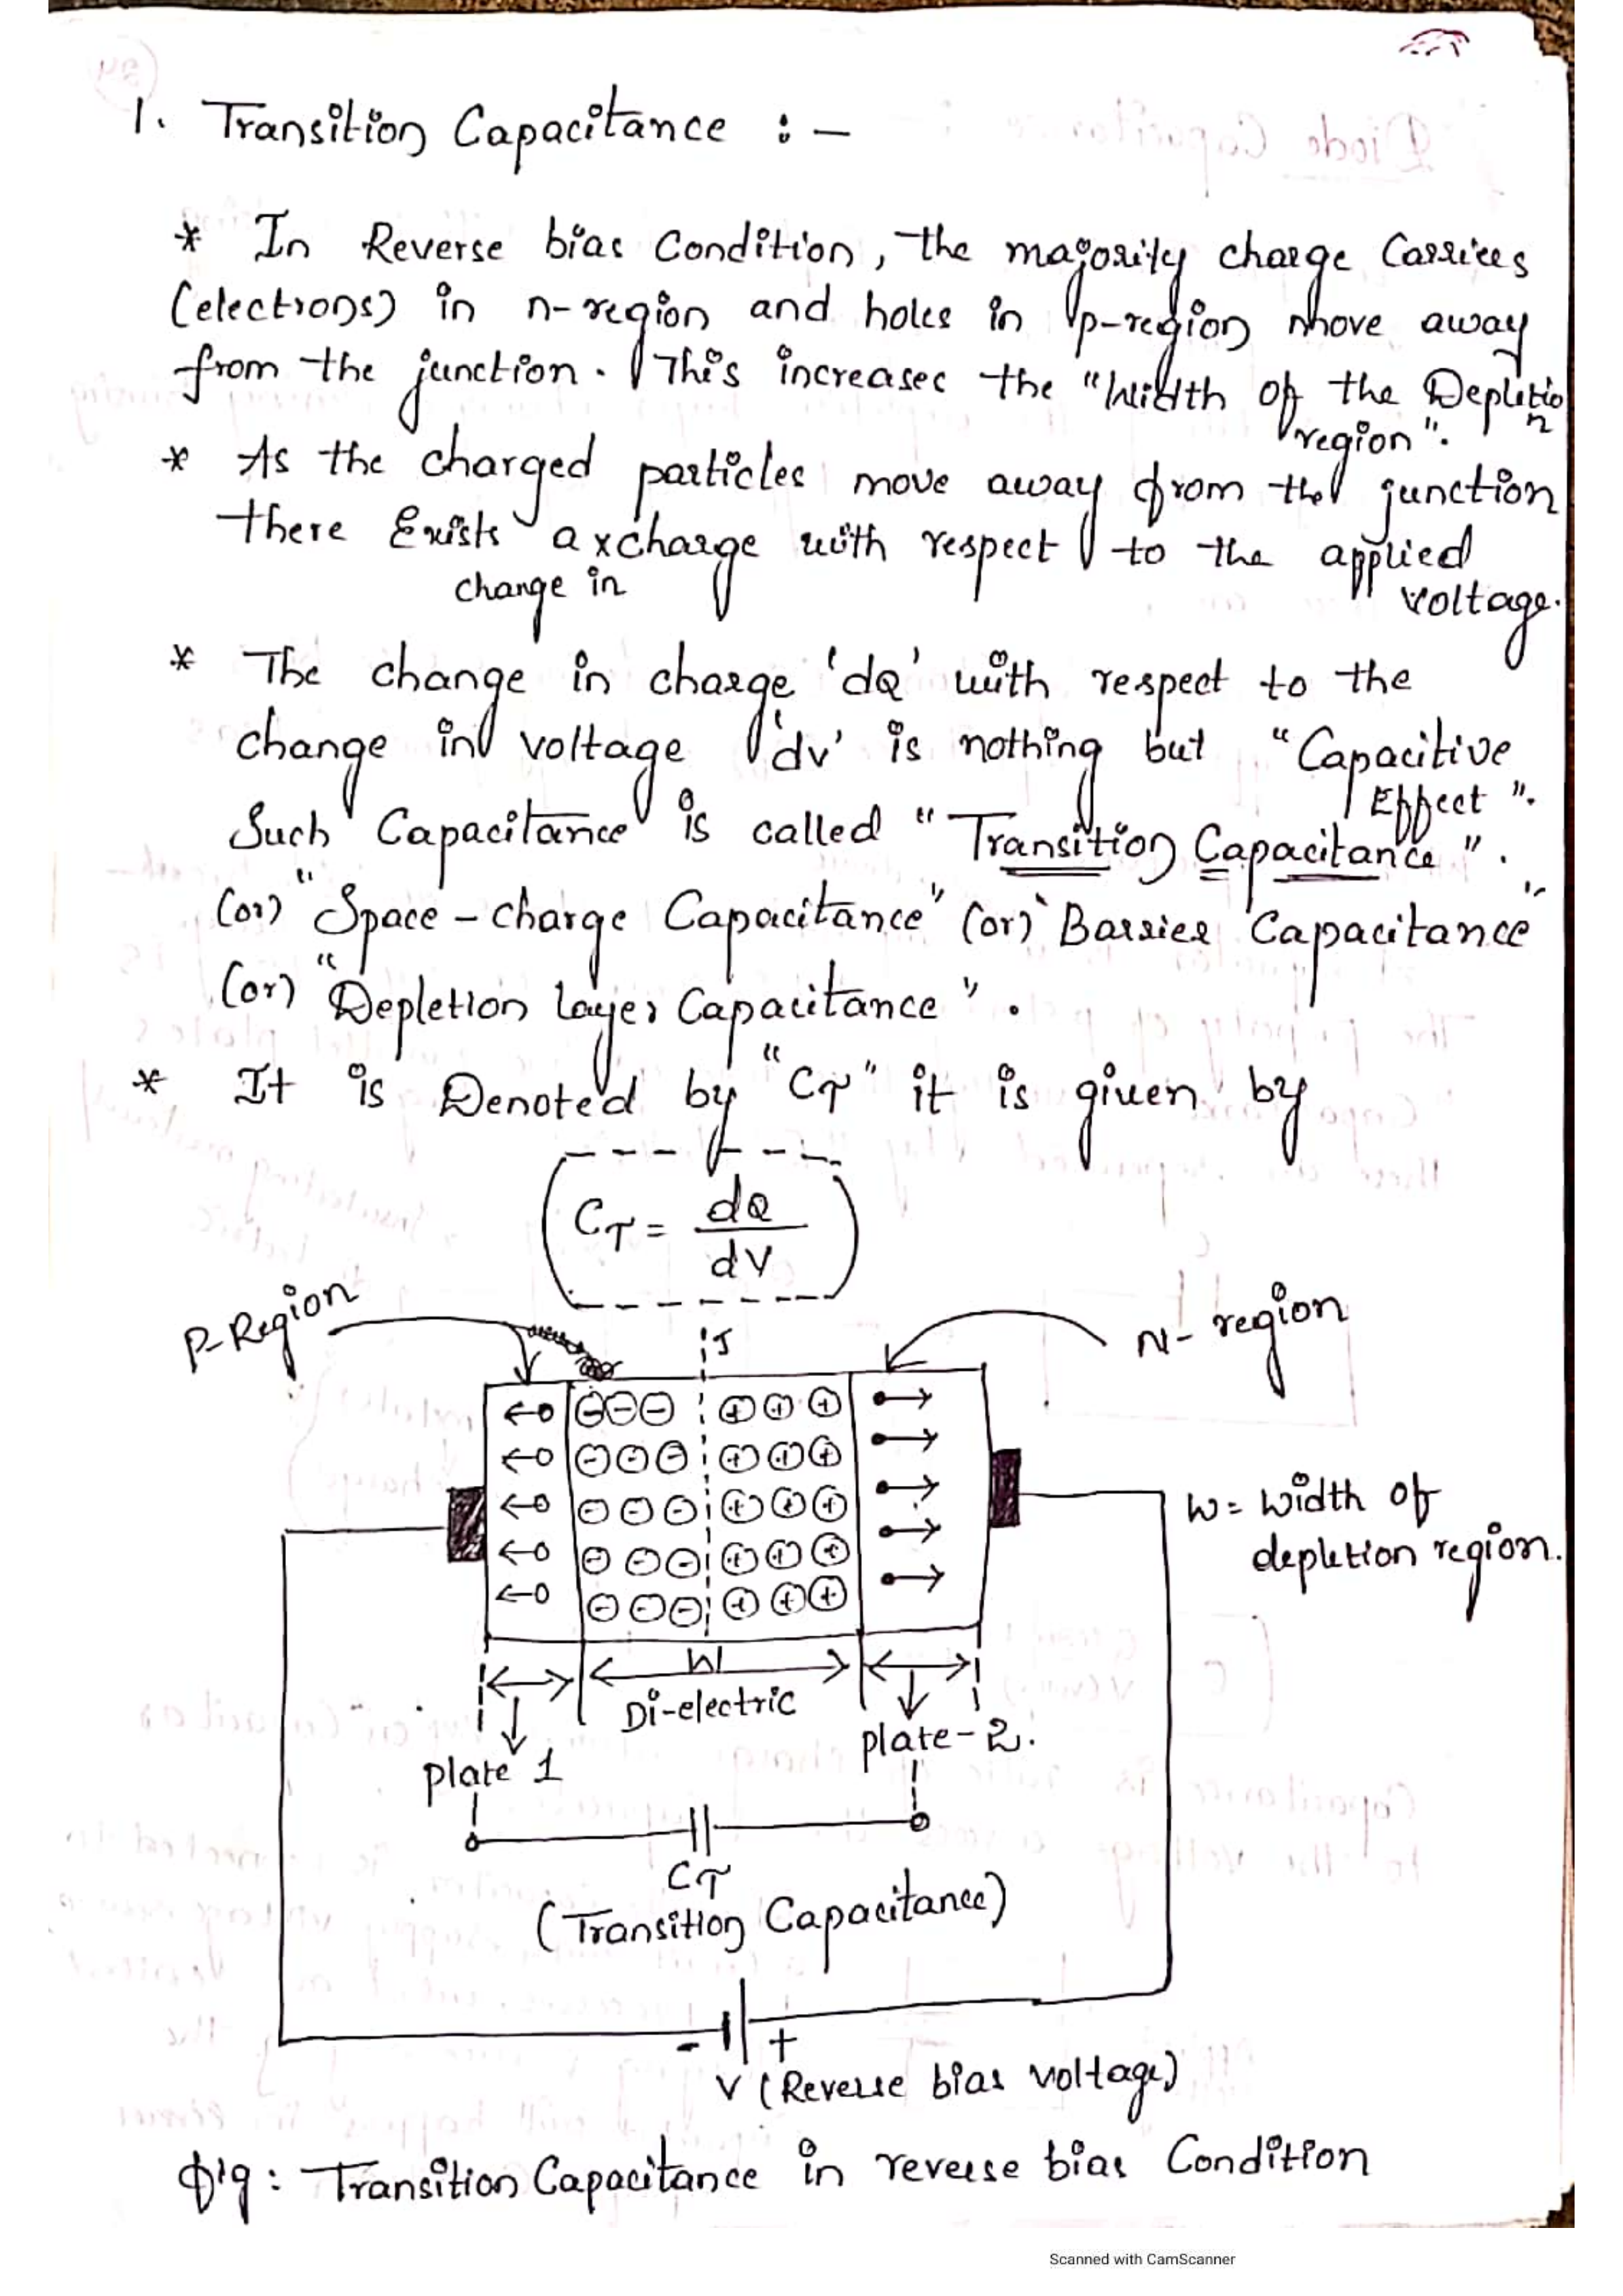 1. Transition Capacitance :-
* In Reverse bias Condition, the majority charge Carriers
(electrons) in n-region and holes in p-region move away
from the junction. This increases the "Width of the Depletion
region".
* As the charged particles move away from the junction
there Exists a x charge with respect to the applied
change in
voltage.
* The change in charge 'dQ' with respect to the
change in voltage 'dv' is nothing but "Capacitive
Effect".
Such Capacitance is called "Transition Capacitance".
(or) "Space-charge Capacitance" (or) "Barrier Capacitance"
(or) "Depletion layer Capacitance".
* It is Denoted by "CT" it is given by
CT = dQ
dV
P-Region
J
N-region
W = width of
depletion region.
W
Di-electric
plate 1
plate-2.
CT
(Transition Capacitance)
- +
V (Reverse bias voltage)
fig: Transition Capacitance in reverse bias Condition
Scanned with CamScanner